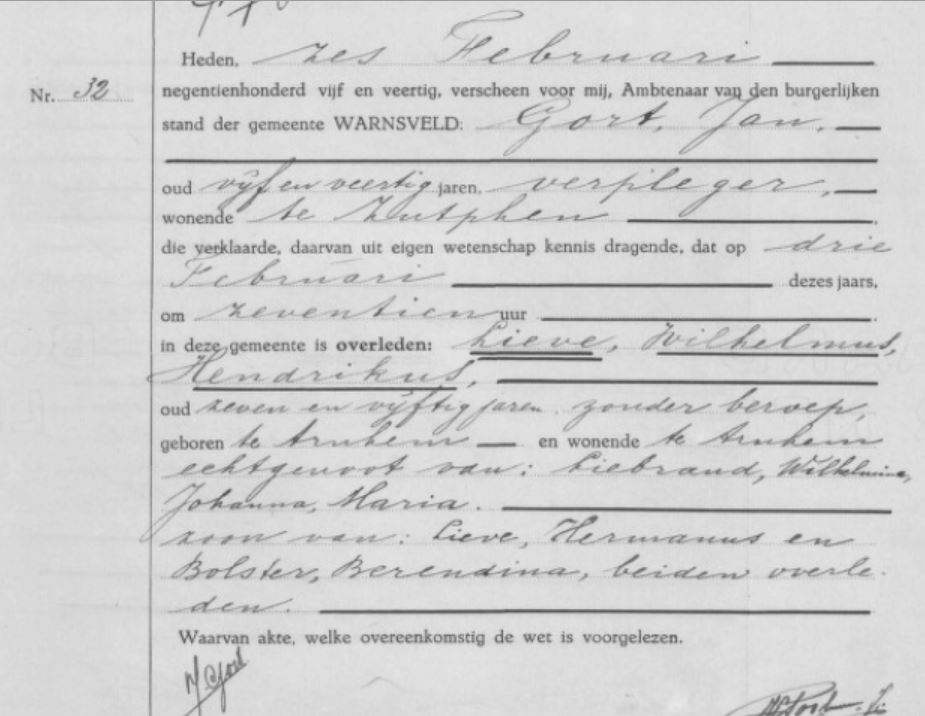 Heden, zes Februari
Nr. 32
negentienhonderd vijf en veertig, verscheen voor mij, Ambtenaar van den burgerlijken
stand der gemeente WARNSVELD: Gort, Jan,
oud vijf en veertig jaren, verpleger,
wonende te Zutphen
die verklaarde, daarvan uit eigen wetenschap kennis dragende, dat op drie
Februari dezes jaars,
om zeventien uur
in deze gemeente is overleden: Lieve, Wilhelmus,
Hendrikus,
oud zeven en vijftig jaren zonder beroep,
geboren te Arnhem en wonende te Arnhem
echtgenoot van: Liebrand, Wilhelmina,
Johanna, Maria.
zoon van: Lieve, Hermanus en
Bolster, Berendina, beiden overle-
den.
Waarvan akte, welke overeenkomstig de wet is voorgelezen.
J. Gort